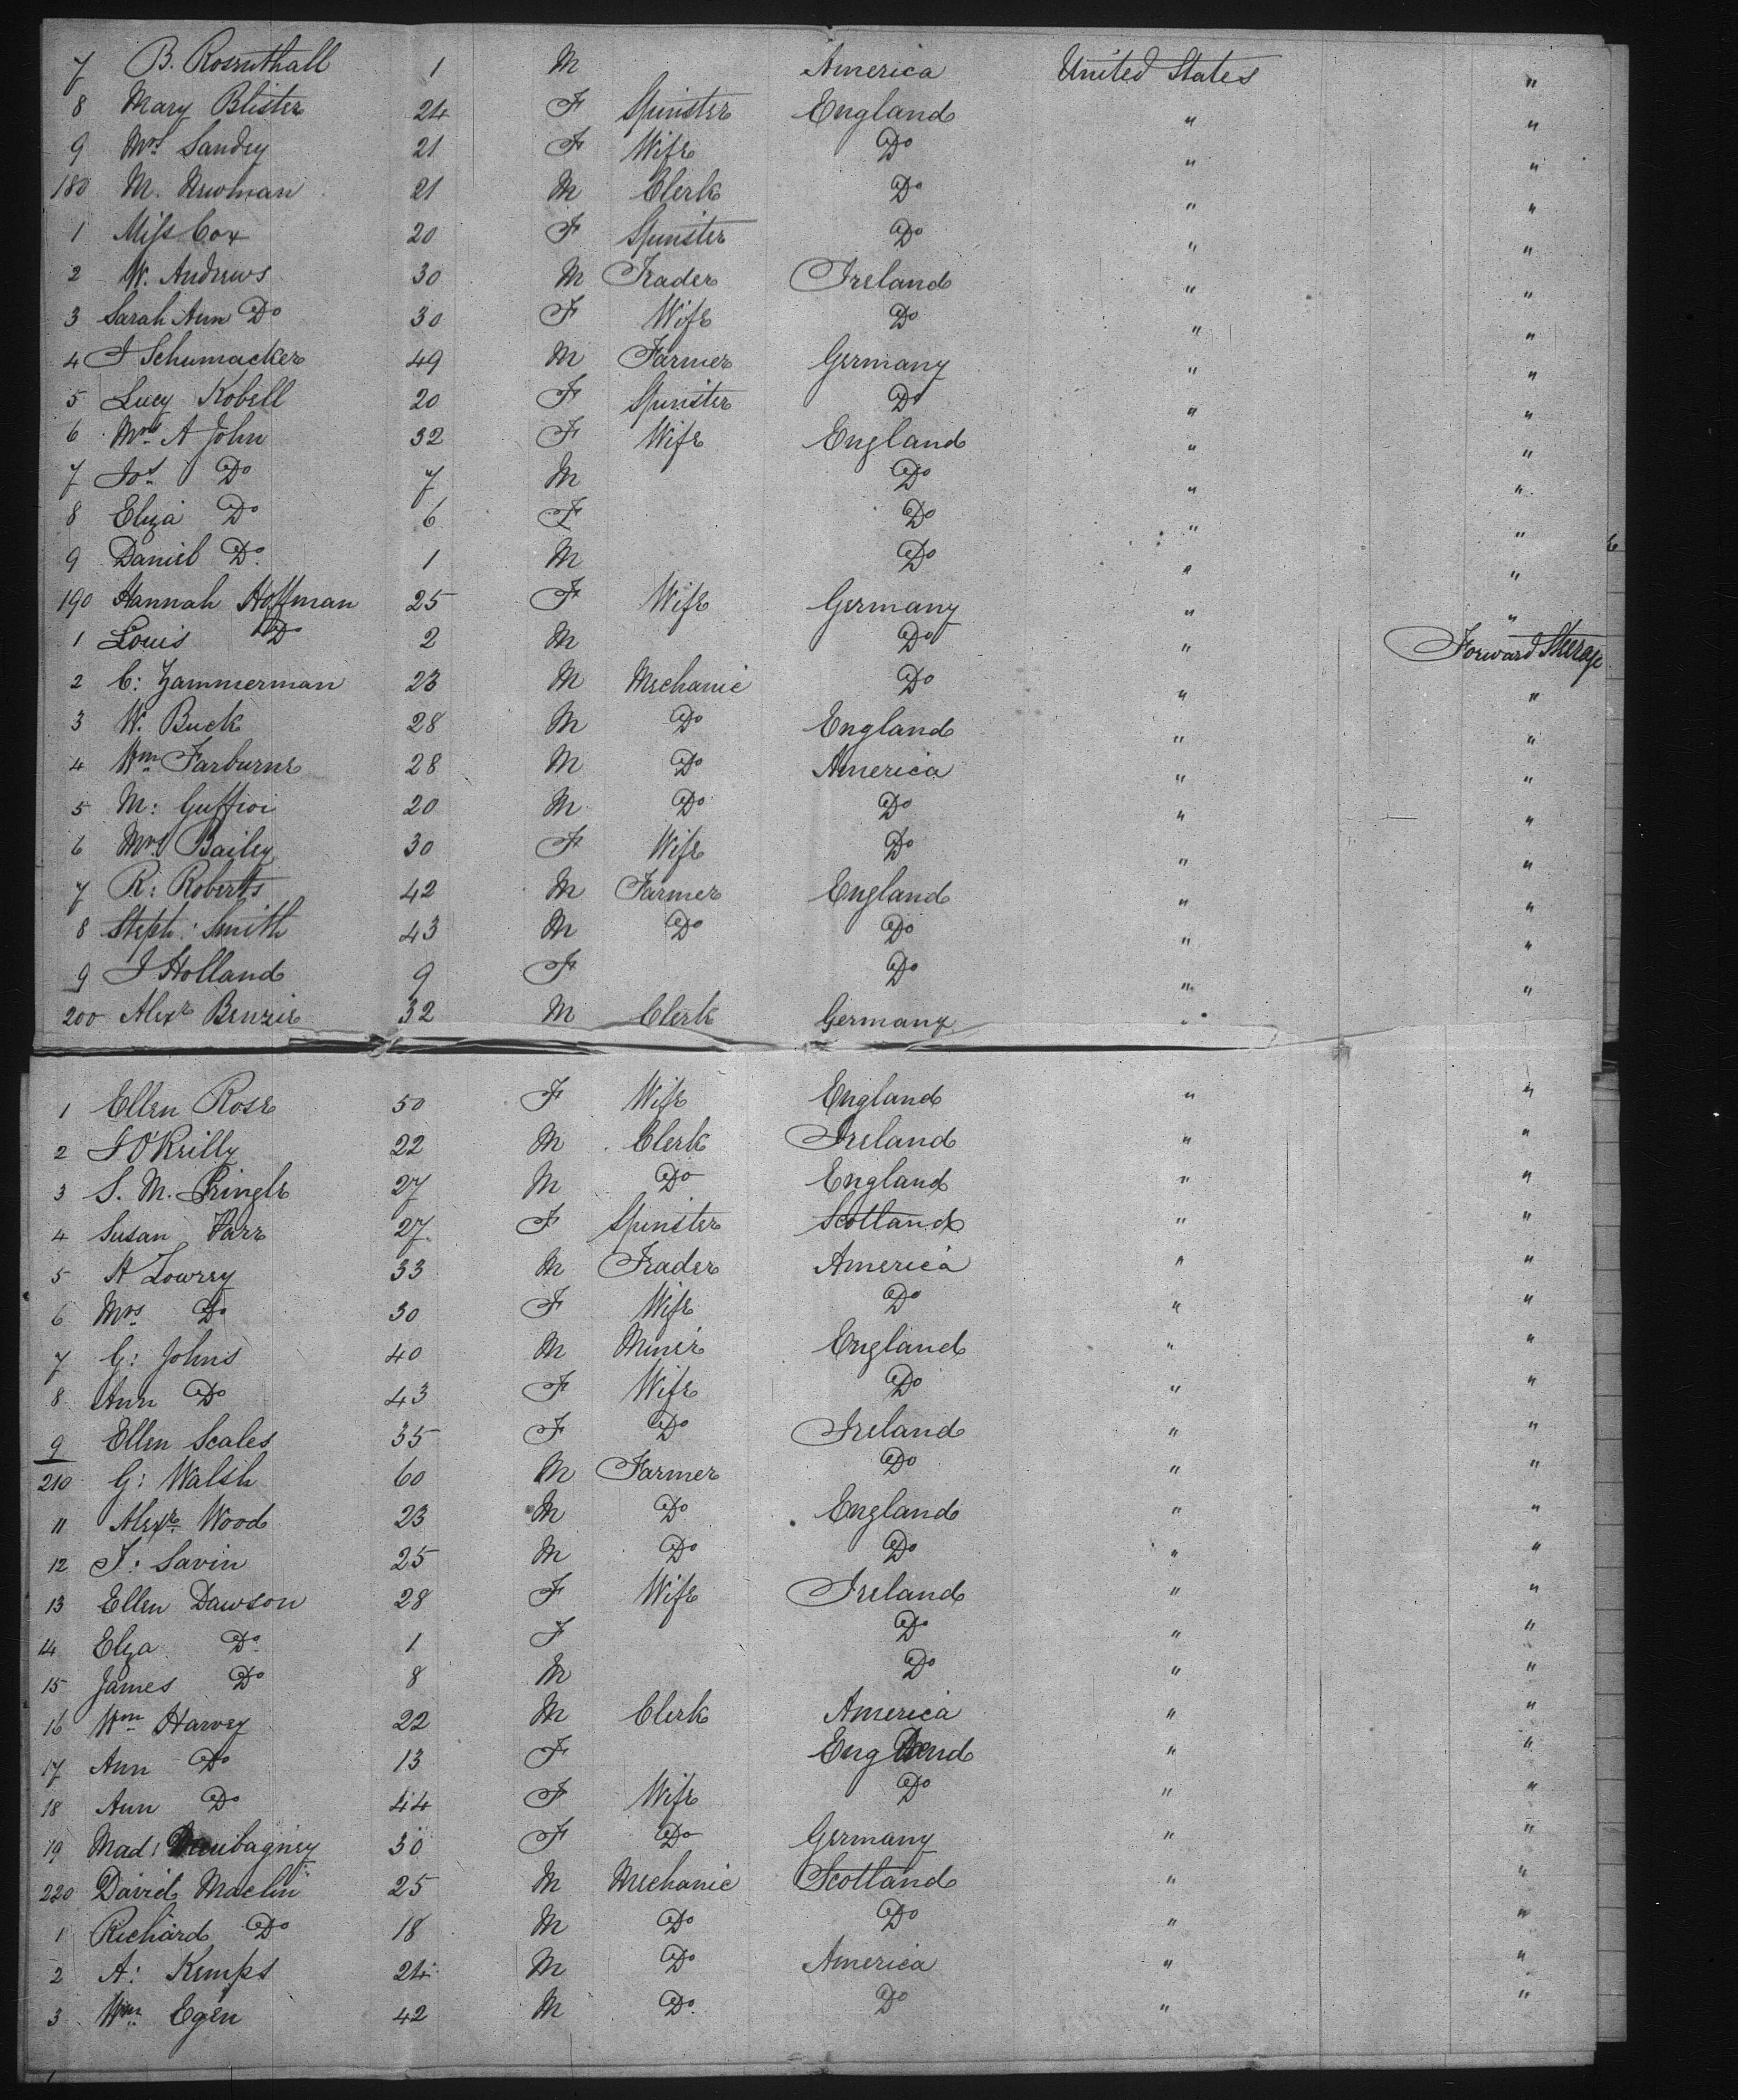 7 B. Rosenthall 1 M America United States "
8 Mary Blister 24 F Spinster England " "
9 Mrs Sandey 21 F Wife Do " "
180 M. Newman 21 M Clerk Do " "
1 Miss Cox 20 F Spinster Do " "
2 W. Andrews 30 M Trader Ireland " "
3 Sarah Ann Do 30 F Wife Do " "
4 J Schumacker 49 M Farmer Germany " "
5 Lucy Kobell 20 F Spinster Do " "
6 Mrs A John 32 F Wife England " "
7 Jos Do 7 M Do " "
8 Eliza Do 6 F Do " "
9 Daniel Do 1 M Do " "
190 Hannah Hoffman 25 F Wife Germany " "
1 Louis Do 2 M Do " Forward Steerage
2 C: Zammerman 23 M Mechanic Do " "
3 W. Buck 28 M Do England " "
4 Wm Farburne 28 M Do America " "
5 M: Guffroi 20 M Do Do " "
6 Mrs Bailey 30 F Wife Do " "
7 R: Roberts 42 M Farmer England " "
8 Steph: Smith 43 M Do Do " "
9 J Holland 9 F Do " "
200 Alexr Benzie 32 M Clerk Germany "
1 Ellen Rose 50 F Wife England " "
2 J O'Reilly 22 M Clerk Ireland " "
3 S. M. Pringle 27 M Do England " "
4 Susan Parr 27 F Spinster Scotland " "
5 A Lowrey 33 M Trader America " "
6 Mrs Do 30 F Wife Do " "
7 G: Johns 40 M Miner England " "
8 Ann Do 43 F Wife Do " "
9 Ellen Scales 35 F Do Ireland " "
210 G: Walsh 60 M Farmer Do " "
11 Alexr Wood 23 M Do England " "
12 J: Savin 25 M Do Do " "
13 Ellen Dawson 28 F Wife Ireland " "
14 Elza Do 1 F Do " "
15 James Do 8 M Do " "
16 Wm Harvey 22 M Clerk America " "
17 Ann Do 13 F England " "
18 Ann Do 44 F Wife Do " "
19 Mad: 30 F Do Germany " "
220 David Maclin 25 M Mechanic Scotland " "
1 Richard Do 18 M Do Do " "
2 A: Kemps 24 M Do America " "
3 Wm Egen 42 M Do Do " "